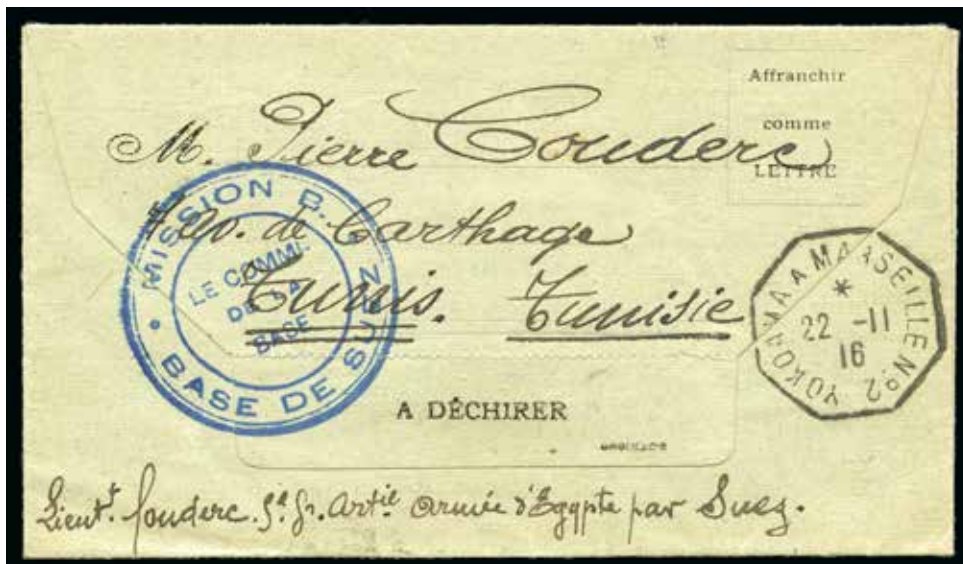 Affranchir
comme
LETTRE
M. Pierre Couderc
Av. de Carthage
Tunis. Tunisie
MISSION B. • BASE DE SUEZ •
LE COMMT
DE LA
BASE
YOKOHAMA A MARSEILLE Nº2
*
22 -11
16
A DÉCHIRER
Lieut.t Couderc. Artie Armée d'Egypte par Suez.